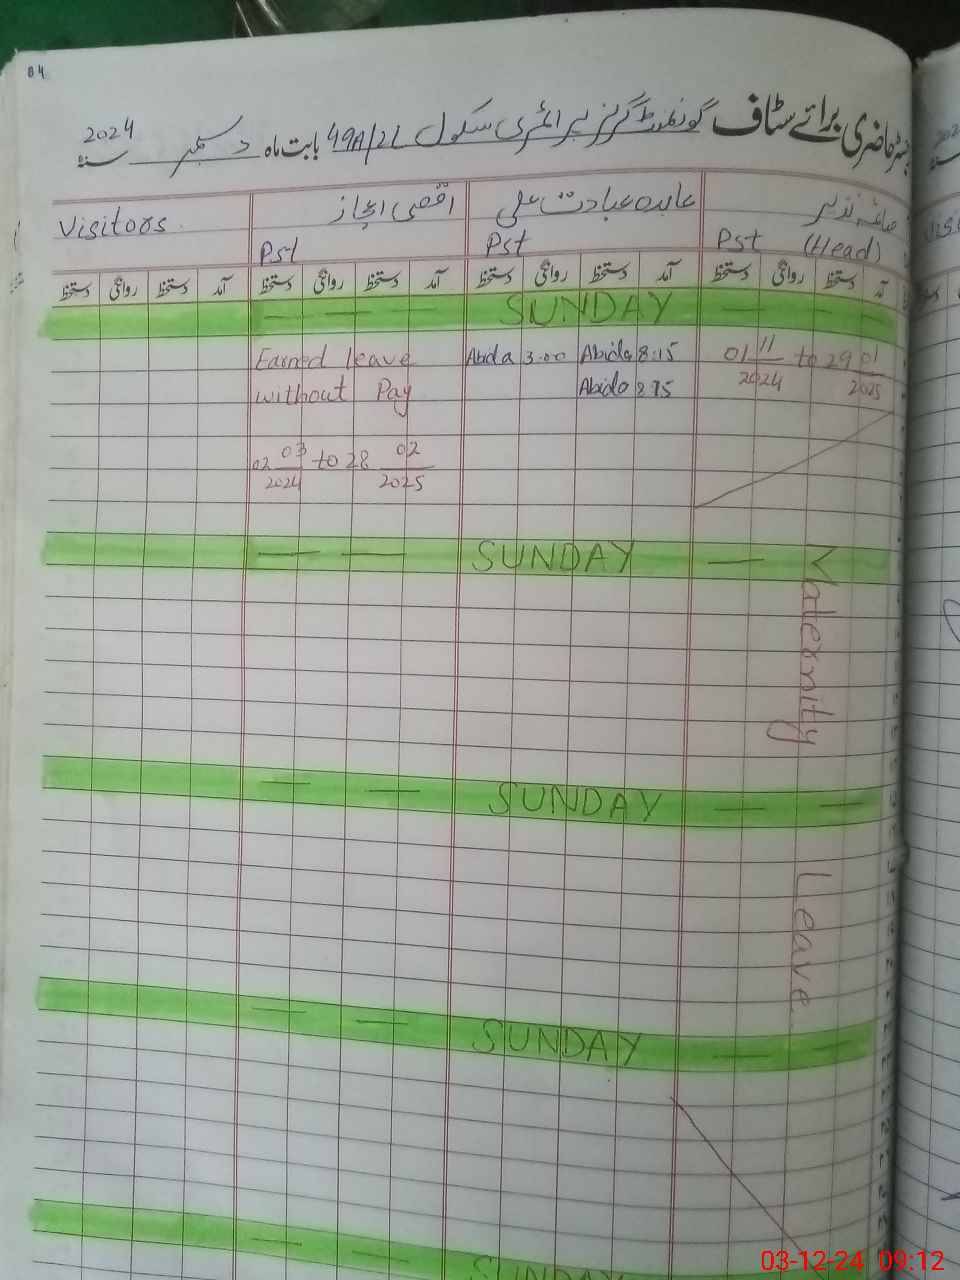 84
رجسٹر حاضری برائے سٹاف گورنمنٹ گرلز پرائمری سکول 49A/2L بابت ماہ دسمبر سنہ 2024
صائمہ نذیر
Pst (Head)
عابدہ عبادت علی
Pst
اقصی اعجاز
Pst
Visitors
آمد دستخط روانگی دستخط آمد دستخط روانگی دستخط آمد دستخط روانگی دستخط آمد دستخط روانگی دستخط
— — — SUNDAY — — —
Earned leave
without Pay
02 03/2024 to 28 02/2025
Abida 3:00 Abida 8:15
Abida 8:15
01 11/2024 to 29 01/2025
— — SUNDAY —
Maternity
— — SUNDAY — —
Leave
— — SUNDAY — —
— — SUNDAY
03-12-24 09:12